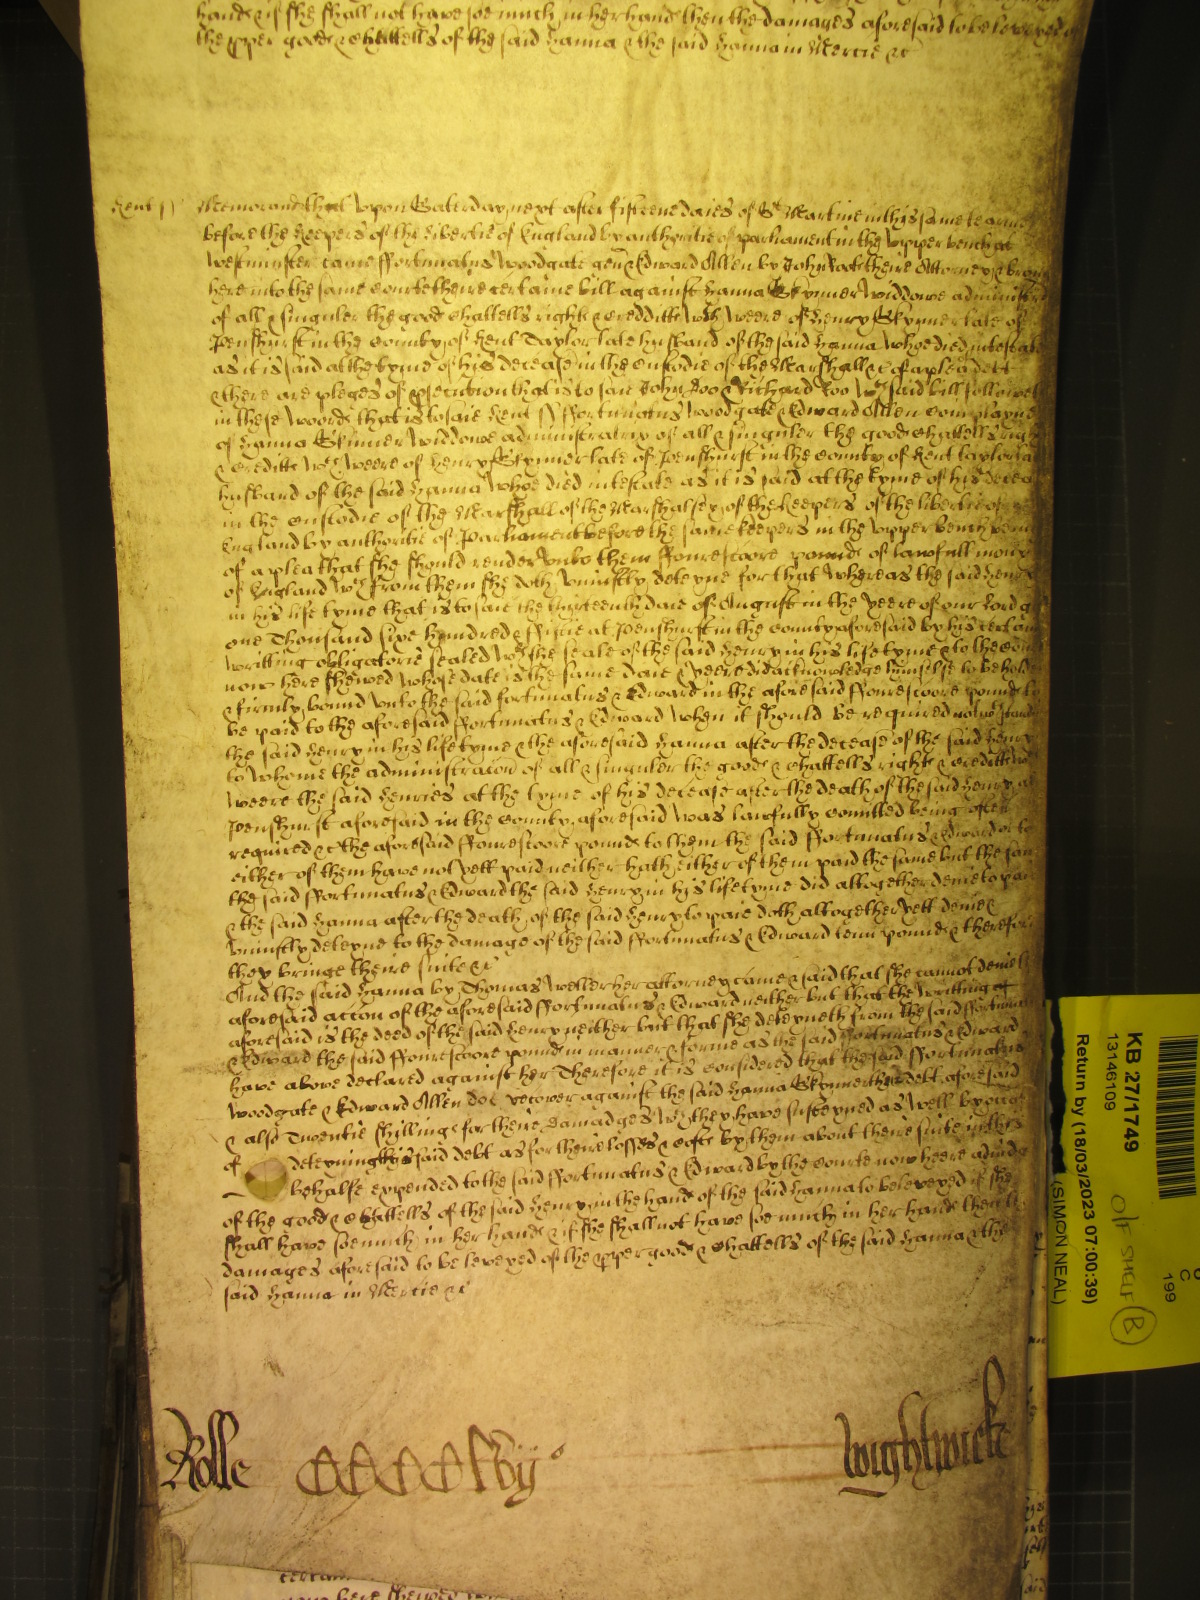 hand & if she shall not have soe much in her hand then the damages aforesaid to be leveyed of
the pper good & Chattells of the said Hanna & the said Hanna in Mercie &c
Kent ss Memorand that upon Saterday next after fifteene daies of St Martine in this same tearme
before the Keepers of the libertie of England by authoritie of parliament in the upper bench at
Westminster came Ffortunatus Woodgate gen & Edward Allen by John their Attorney & brou
here into the same courte theire certaine bill against Hanna Skynner Widdowe administr
of all & singuler the good Chattells right & Creditte wch weere of Henry Skynner late of
Penshurst in the County of Kent Taylor late husband of the said Hanna whoe died intestate
as it is said at the tyme of his decease in the Custodie of the Marshall &c of a plea of dett
& there are pleges of psecution that is to saie John Doo & Richard Roo wch said bill followeth
in these Woord that is to saie Kent ss Ffortunatus Woodgate & Edward Allen complayne
of Hanna Skinner Widdowe administratrix of all & singuler the good Chattells righ
& Creditte wch weere of Henry Skynner late of Penshurst in the County of Kent taylor la
husband of the said Hanna Whoe died intestate as it is said at the tyme of his decea
in the Custodie of the Marshall of the Marshalsey of the Keepers of the libertie of
England by authoritie of Parliament before the same keepers in the upper bench
of a plea that she should render unto them Ffourescoore pound of lawfull mony
of England wch from them she doth uniustly deteyne for that whereas the said Henry
in his life tyme that is to saie the thirteenth daie of August in the yeere of our lord g
one Thousand sixe hundred & Ffiftie at Penshurst in the County aforesaid by his certain
writting obligatorie sealed wth the seale of the said Henry in his life tyme & to the Cou
now here shewed whose date is the same daie & yeere did acknowledge himselfe to be holde
& firmly bound unto the said Fortunatus & Edward in the aforesaid Ffourescoore pound to
be paid to the aforesaid Ffortunatus & Edward when it should be required
the said Henry in his life tyme & the aforesaid Hanna after the decease of the said Henry
to whome the administracon of all & singuler the good & Chattells right & Creditte wch
weere the said Henries at the tyme of his decease after the death of the said Henry at
Penshurst aforesaid in the County aforesaid was lawfully comitted being often
required &c the aforesaid Ffourescoore pound to them the said Ffortunatus & Edward or to
either of them have not yett paid neither hath either of them paid the same but the sam
the said Ffortunatus & Edward the said Henry in his life tyme did altogether denie to pai
& the said Hanna after the death of the said Henry to paie doth altogether yett denie &
uniustly deteyne to the damage of the said Ffortunatus & Edward tenn pound & therefor
they bringe theire suite &c
And the said Hanna by Thomas Weller her attorney came & said that she cannot denie t
aforesaid accon of the aforesaid Ffortunatus & Edward neither but that the writting of
aforesaid is the deed of the said Henry neither but that she deteyneth from the said Ffortuna
& Edward the said Ffourescoore pound in manner & forme as the said Ffortunatus & Edward
have above declared against her Therefore it is considered that the said Ffortunatus
Woodgate & Edward Allen doe recover against the said Hanna Skynner their debt aforesaid
& also Twentie shilling for theire damadges wch they have susteyned as well by occa
of deteyning this said debt as for theire losses & Coste by them about theire suite in this
behalfe expended to the said Ffortunatus & Edward by the Courte now heere adiudg
of the good & Chattells of the said Henry in the hand of the said Hanna to be leveyed if she
shall have soe much in her hand & if she shall not have soe much in her hand then the
damages aforesaid to be leveyed of the pper good & Chattells of the said Hanna & the
said Hanna in Mercie &c
Rolle CCCClxvijo Wightwicke
KB 27/1749
13146109
Return by (18/03/2023 07:00:39)
(SIMON NEAL)
Off SHELF B
C
199